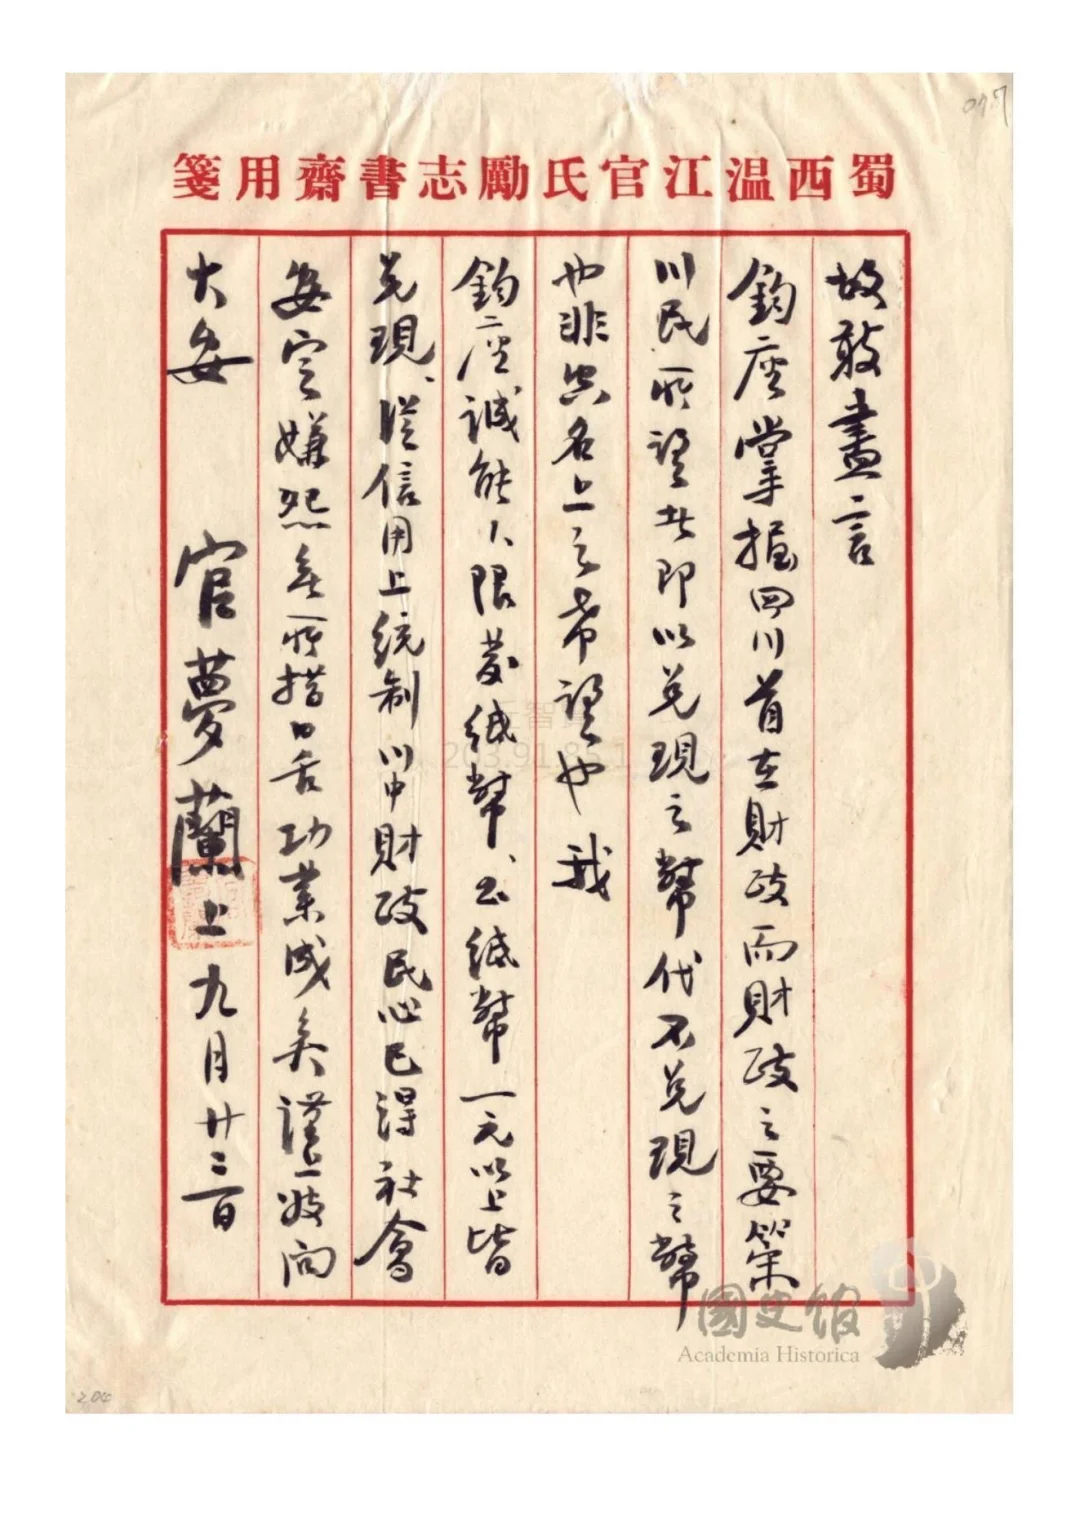 077
蜀西温江官氏勵志書齋用箋
故敢盡言
鈞座掌握四川首在財政而財政之要策
川民所望者即以兌現之幣代不兌現之幣
也非空名上之希望也我
鈞座誠能人限發紙幣、出紙幣一元以上皆
兌現、從信用上統制川中財政民心已得社會
安定嫌怨無所措口舌功業成矣謹上敬問
大安 官夢蘭上九月廿二日
國史館
Academia Historica
203.91.85.1
204